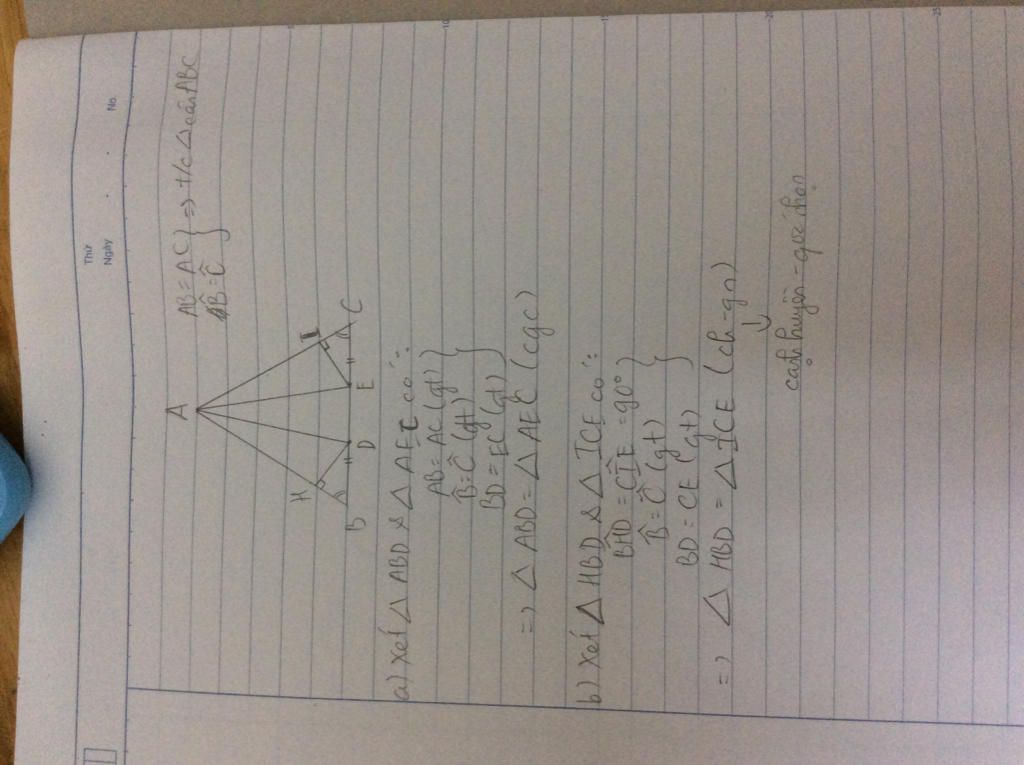 Thứ
Ngày
No.
5
10
15
20
25
AB = AC } => t/c Δ cân ABC
B̂ = Ĉ
A
H
I
B
D
E
C
a) Xét Δ ABD & Δ AEC có:
AB = AC (gt)
B̂ = Ĉ (gt)
BD = EC (gt)
=> Δ ABD = Δ AEC (cgc)
b) Xét Δ HBD & Δ ICE có:
BĤD = CÎE = 90°
B̂ = Ĉ (gt)
BD = CE (gt)
=> Δ HBD = Δ ICE (ch - gn)
↓
cạnh huyền - góc nhọn